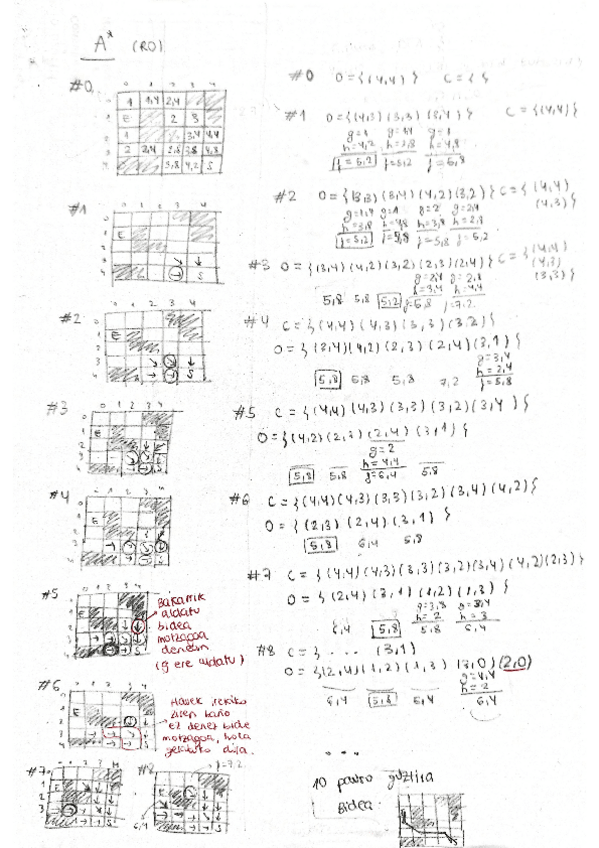 A* (RO)
#0 O={(4,4)} C={ {
0 1 2 3 4
1 1,4 2,4
E 2 3
1 3,4 4,4
2 2,4 3,8 4,8
5,8 4,2 S
#1 O={(4,3)(3,3)(3,4)} C={(4,4)}
g=1 g=1,4 g=1
h=4,2 h=3,8 h=4,8
f=5,2 f=5,2 f=5,8
#2 O={(3,3)(3,4)(4,2)(3,2)} C={(4,4)
(4,3)
g=1,4 g=1 g=2 g=2,4
h=3,8 h=4,8 h=3,8 h=2,8
f=5,2 f=5,8 f=5,8 f=5,2
#3 O={(3,4)(4,2)(3,2)(2,3)(2,4)} C={(4,4)
(4,3)
(3,3)}
g=2,4 g=2,8
h=3,4 h=4,4
5,8 5,8 5,2 f=5,8 f=7,2
#4 C={(4,4)(4,3)(3,3)(3,2)}
O={(3,4)(4,2)(2,3)(2,4)(3,1)}
g=3,4
h=2,4
5,8 5,8 5,8 7,2 f=5,8
#5 C={(4,4)(4,3)(3,3)(3,2)(3,4)}
O={(4,2)(2,3)(2,4)(3,1)}
g=2
h=4,4
5,8 5,8 f=6,4 5,8
Bakarrik
aldatu
bidea
motzagoa
denean
(g ere aldatu)
#6 C={(4,4)(4,3)(3,3)(3,2)(3,4)(4,2)}
O={(2,3)(2,4)(3,1)}
5,8 6,4 5,8
Hauek
diren baino
ez denez bide
motzagoa, hola
geldituko dira.
#7 C={(4,4)(4,3)(3,3)(3,2)(3,4)(4,2)(2,3)}
O={(2,4)(3,1)(1,2)(1,3)}
g=3,8 g=3,4
h=2 h=3
6,4 5,8 5,8 6,4
#8 C={ . . . (3,1)
O={(2,4)(1,2)(1,3)(3,0)(2,0)
g=4,4
h=2
6,4 5,8 6,4 6,4
f=7,2
6,4
...
10 pauso guztira
Bidea: